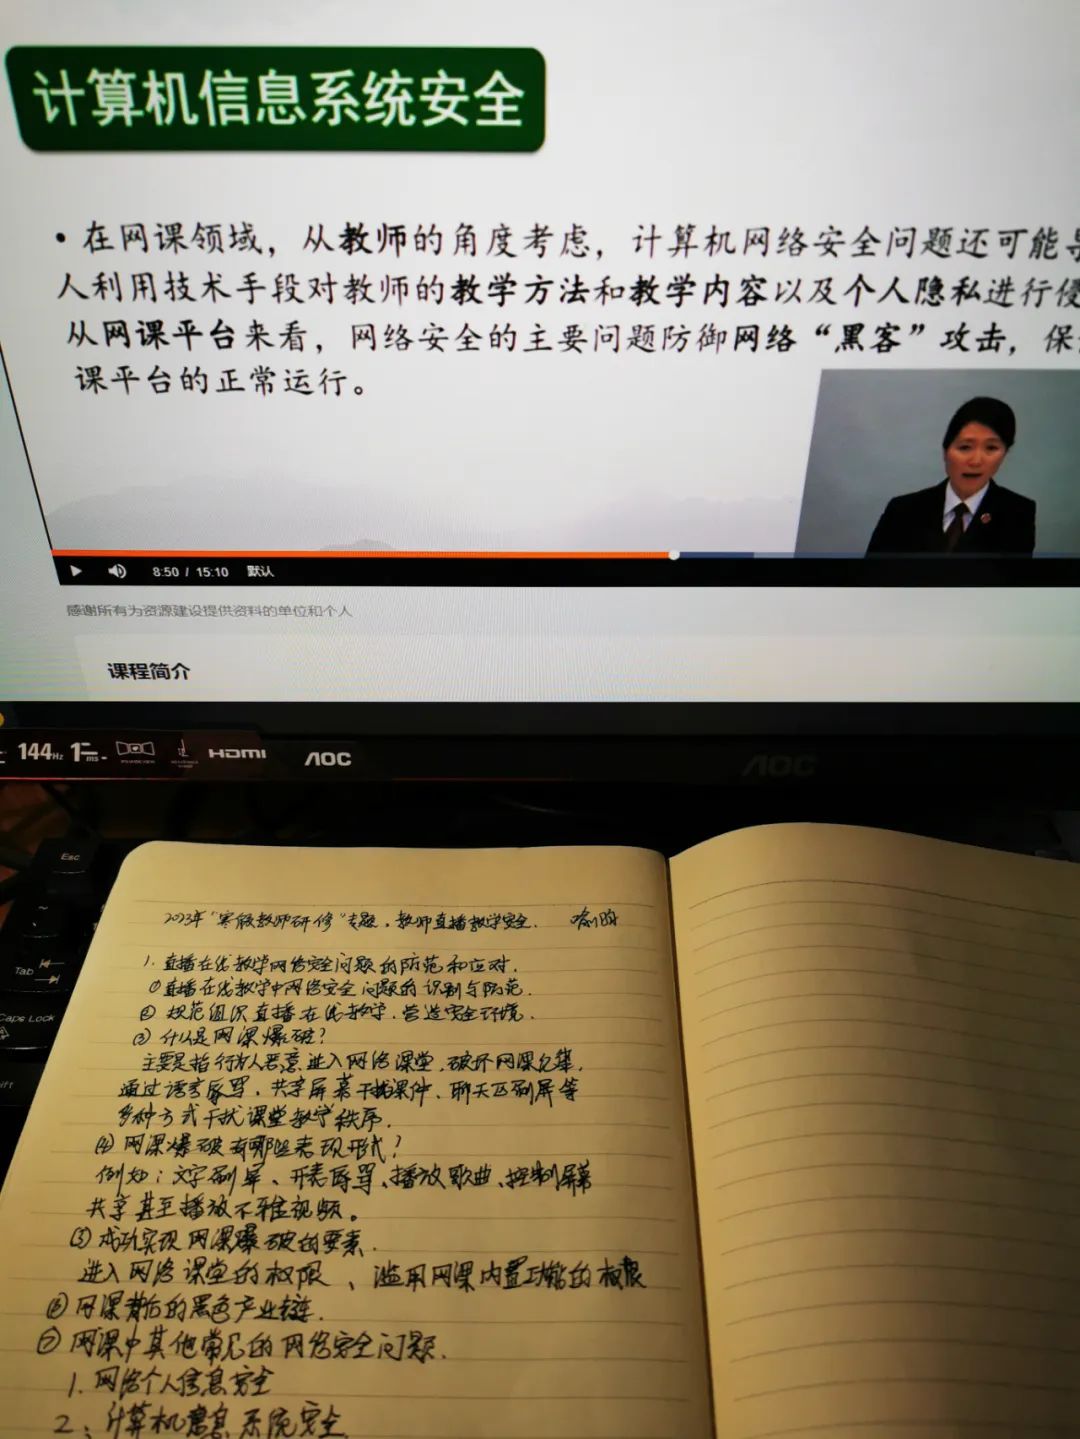 计算机信息系统安全
• 在网课领域，从教师的角度考虑，计算机网络安全问题还可能导
人利用技术手段对教师的教学方法和教学内容以及个人隐私进行侵
从网课平台来看，网络安全的主要问题防御网络“黑客”攻击，保
课平台的正常运行。
8:50 / 15:10 默认
感谢所有为资源建设提供资料的单位和个人
课程简介
144Hz 1ms HDMI AOC
AOC
Esc
Tab
Caps Lock
2023年“寒假教师研修”专题，教师直播教学安全.
1. 直播在线教学网络安全问题的防范和应对.
①直播在线教学中网络安全问题的识别与防范.
② 规范组织直播在线教学.营造安全环境.
③ 什么是网课爆破？
主要是指行为人恶意进入网络课堂，破坏网课收集，
通过语言辱骂、共享屏幕干扰课件、聊天区刷屏等
多种方式干扰课堂教学秩序.
④ 网课爆破有哪些表现形式？
例如：文字刷屏、开麦辱骂、播放歌曲、控制屏幕
共享甚至播放不雅视频。
⑤ 成功实现网课爆破的要素.
进入网络课堂的权限、滥用网课内置功能的权限
⑥ 网课背后的黑色产业链.
⑦ 网课中其他常见的网络安全问题.
1. 网络个人信息安全
2、计算机信息系统安全